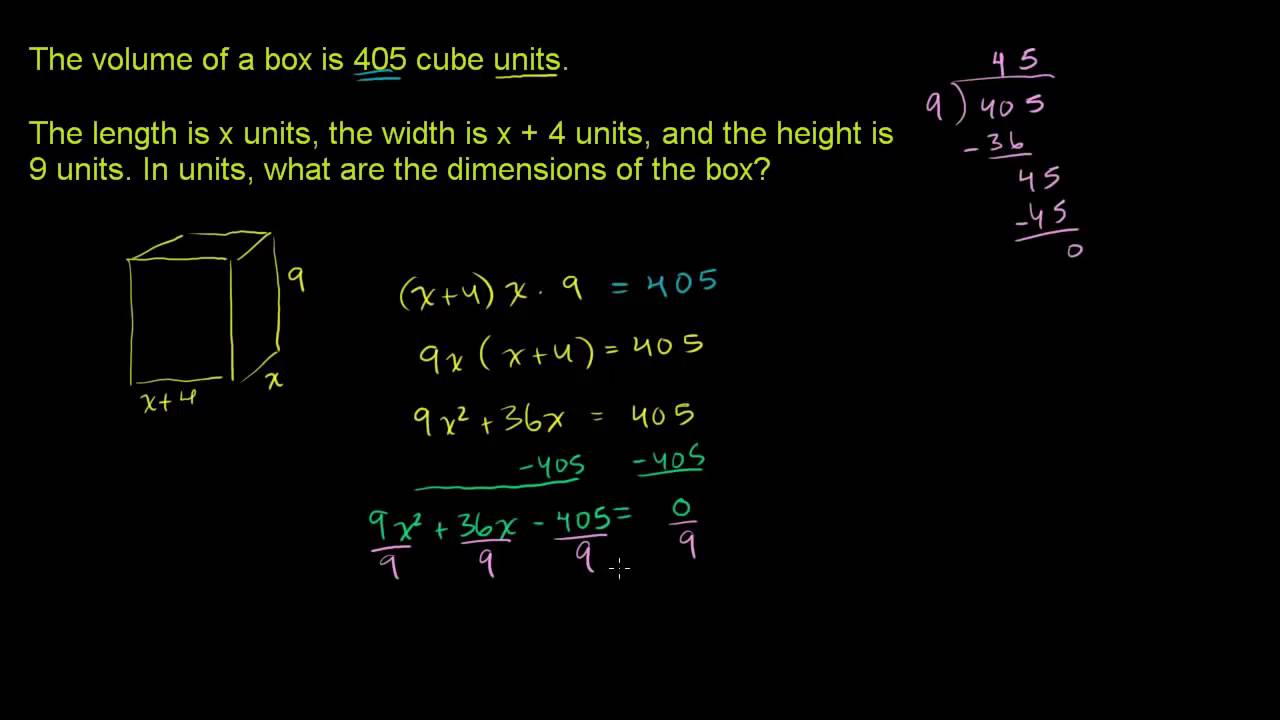 The volume of a box is 405 cube units.
The length is x units, the width is x + 4 units, and the height is
9 units. In units, what are the dimensions of the box?
45
9)405
-36
45
-45
0
9
x+4
x
(x+4)x·9 = 405
9x(x+4) = 405
9x²+36x = 405
-405 -405
9x² + 36x - 405 = 0
9 9 9 9